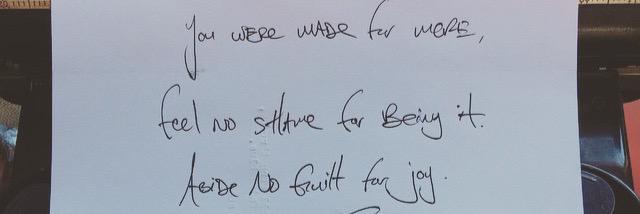 You were made for more,
feel no shame for being it.
Abide no guilt for joy.